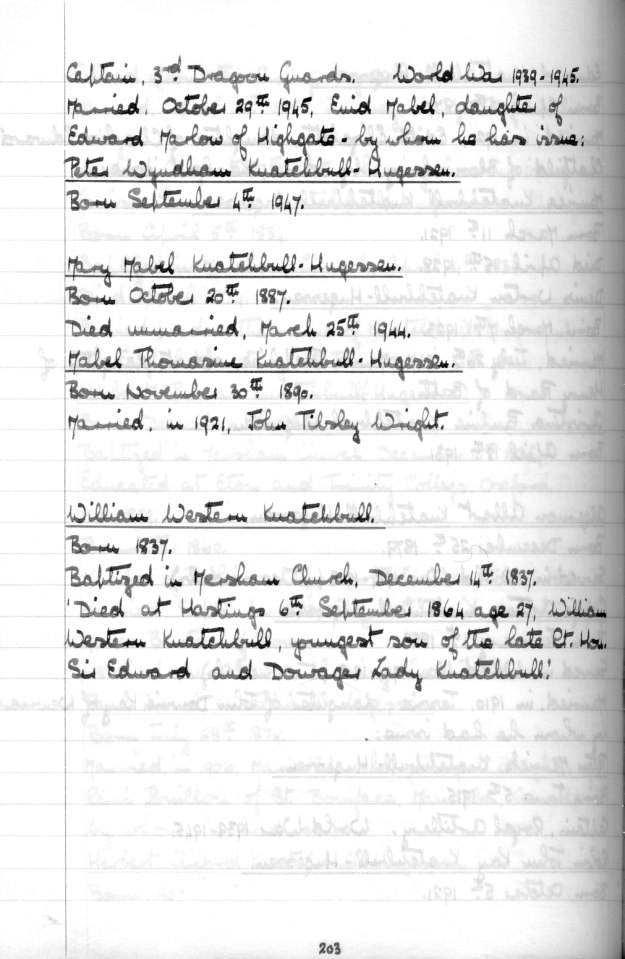 Captain, 3rd Dragoon Guards. World War 1939-1945.
Married, October 29th 1945, Enid Mabel, daughter of
Edward Marlow of Highgate - by whom he has issue:
Peter Wyndham Knatchbull-Hugessen.
Born September 4th 1947.
Mary Mabel Knatchbull-Hugessen.
Born October 20th 1887.
Died unmarried, March 25th 1944.
Mabel Thomasine Knatchbull-Hugessen.
Born November 30th 1890.
Married, in 1921, John Tilsley Wright.
William Western Knatchbull.
Born 1837.
Baptized in Mersham Church, December 14th 1837.
'Died at Hastings 6th September 1864 age 27, William
Western Knatchbull, youngest son of the late Rt. Hon.
Sir Edward and Dowager Lady Knatchbull.'
203